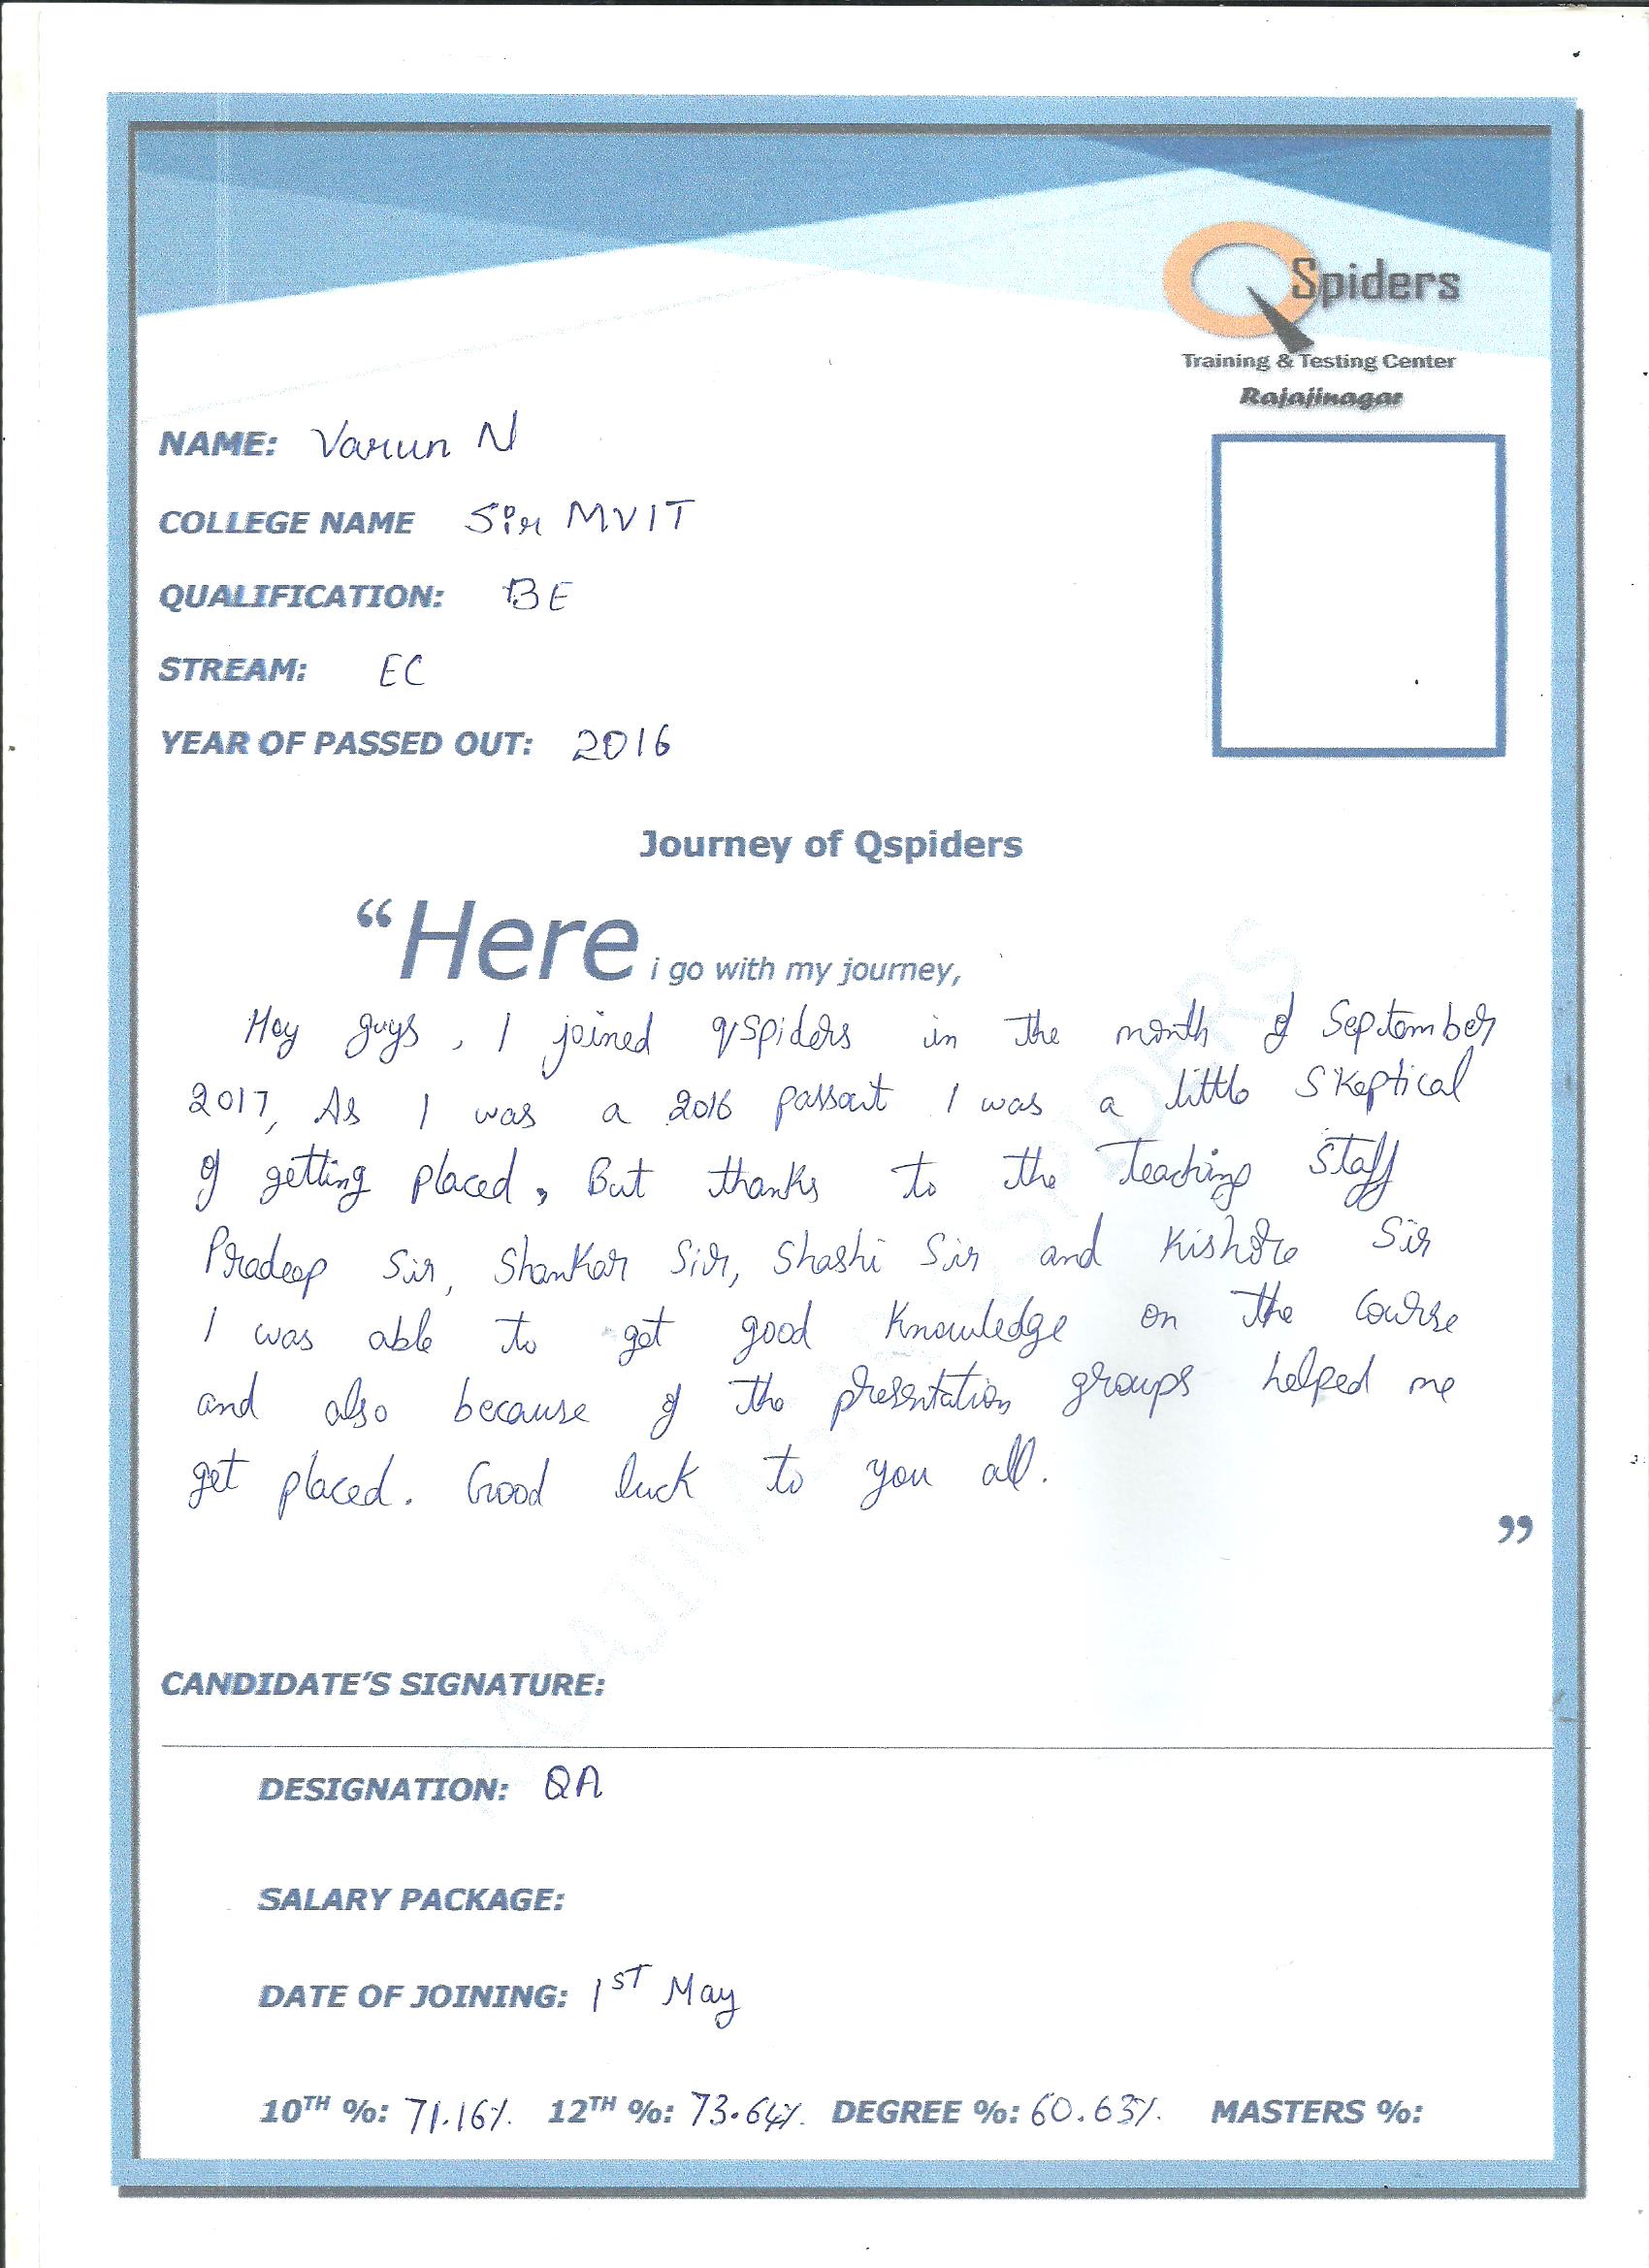 QSpiders
Training & Testing Center
Rajajinagar
NAME: Varun N
COLLEGE NAME Sir MVIT
QUALIFICATION: BE
STREAM: EC
YEAR OF PASSED OUT: 2016
Journey of Qspiders
“Here i go with my journey,
Hey guys, I joined qspiders in the month of September
2017, As I was a 2016 passout I was a little skeptical
of getting placed, But thanks to the Teaching Staff
Pradeep Sir, Shankar Sir, Shashi Sir and Kishore Sir
I was able to get good knowledge on the course
and also because of the presentation groups helped me
get placed. Good luck to you all.
”
CANDIDATE’S SIGNATURE:
DESIGNATION: QA
SALARY PACKAGE:
DATE OF JOINING: 1ST May
10TH %: 71.16% 12TH %: 73.64% DEGREE %: 60.63% MASTERS %: